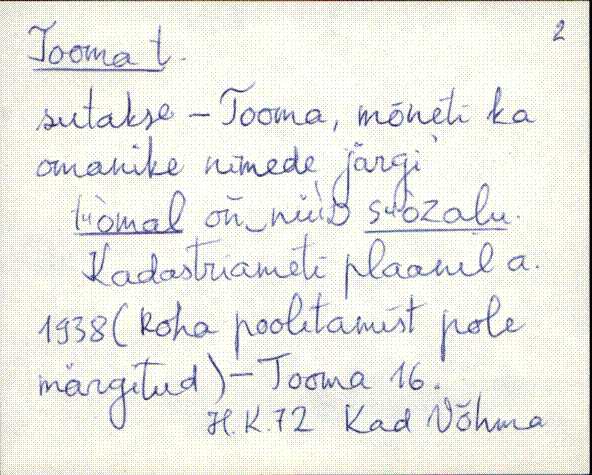 2
Tooma t.
sutakse – Tooma, mõneti ka
omanike nimede järgi
on
Kadastriameti plaanil a.
1938 (koha poolitamist pole
märgitud) – Tooma 16.
H.K.72 Kad Võhma